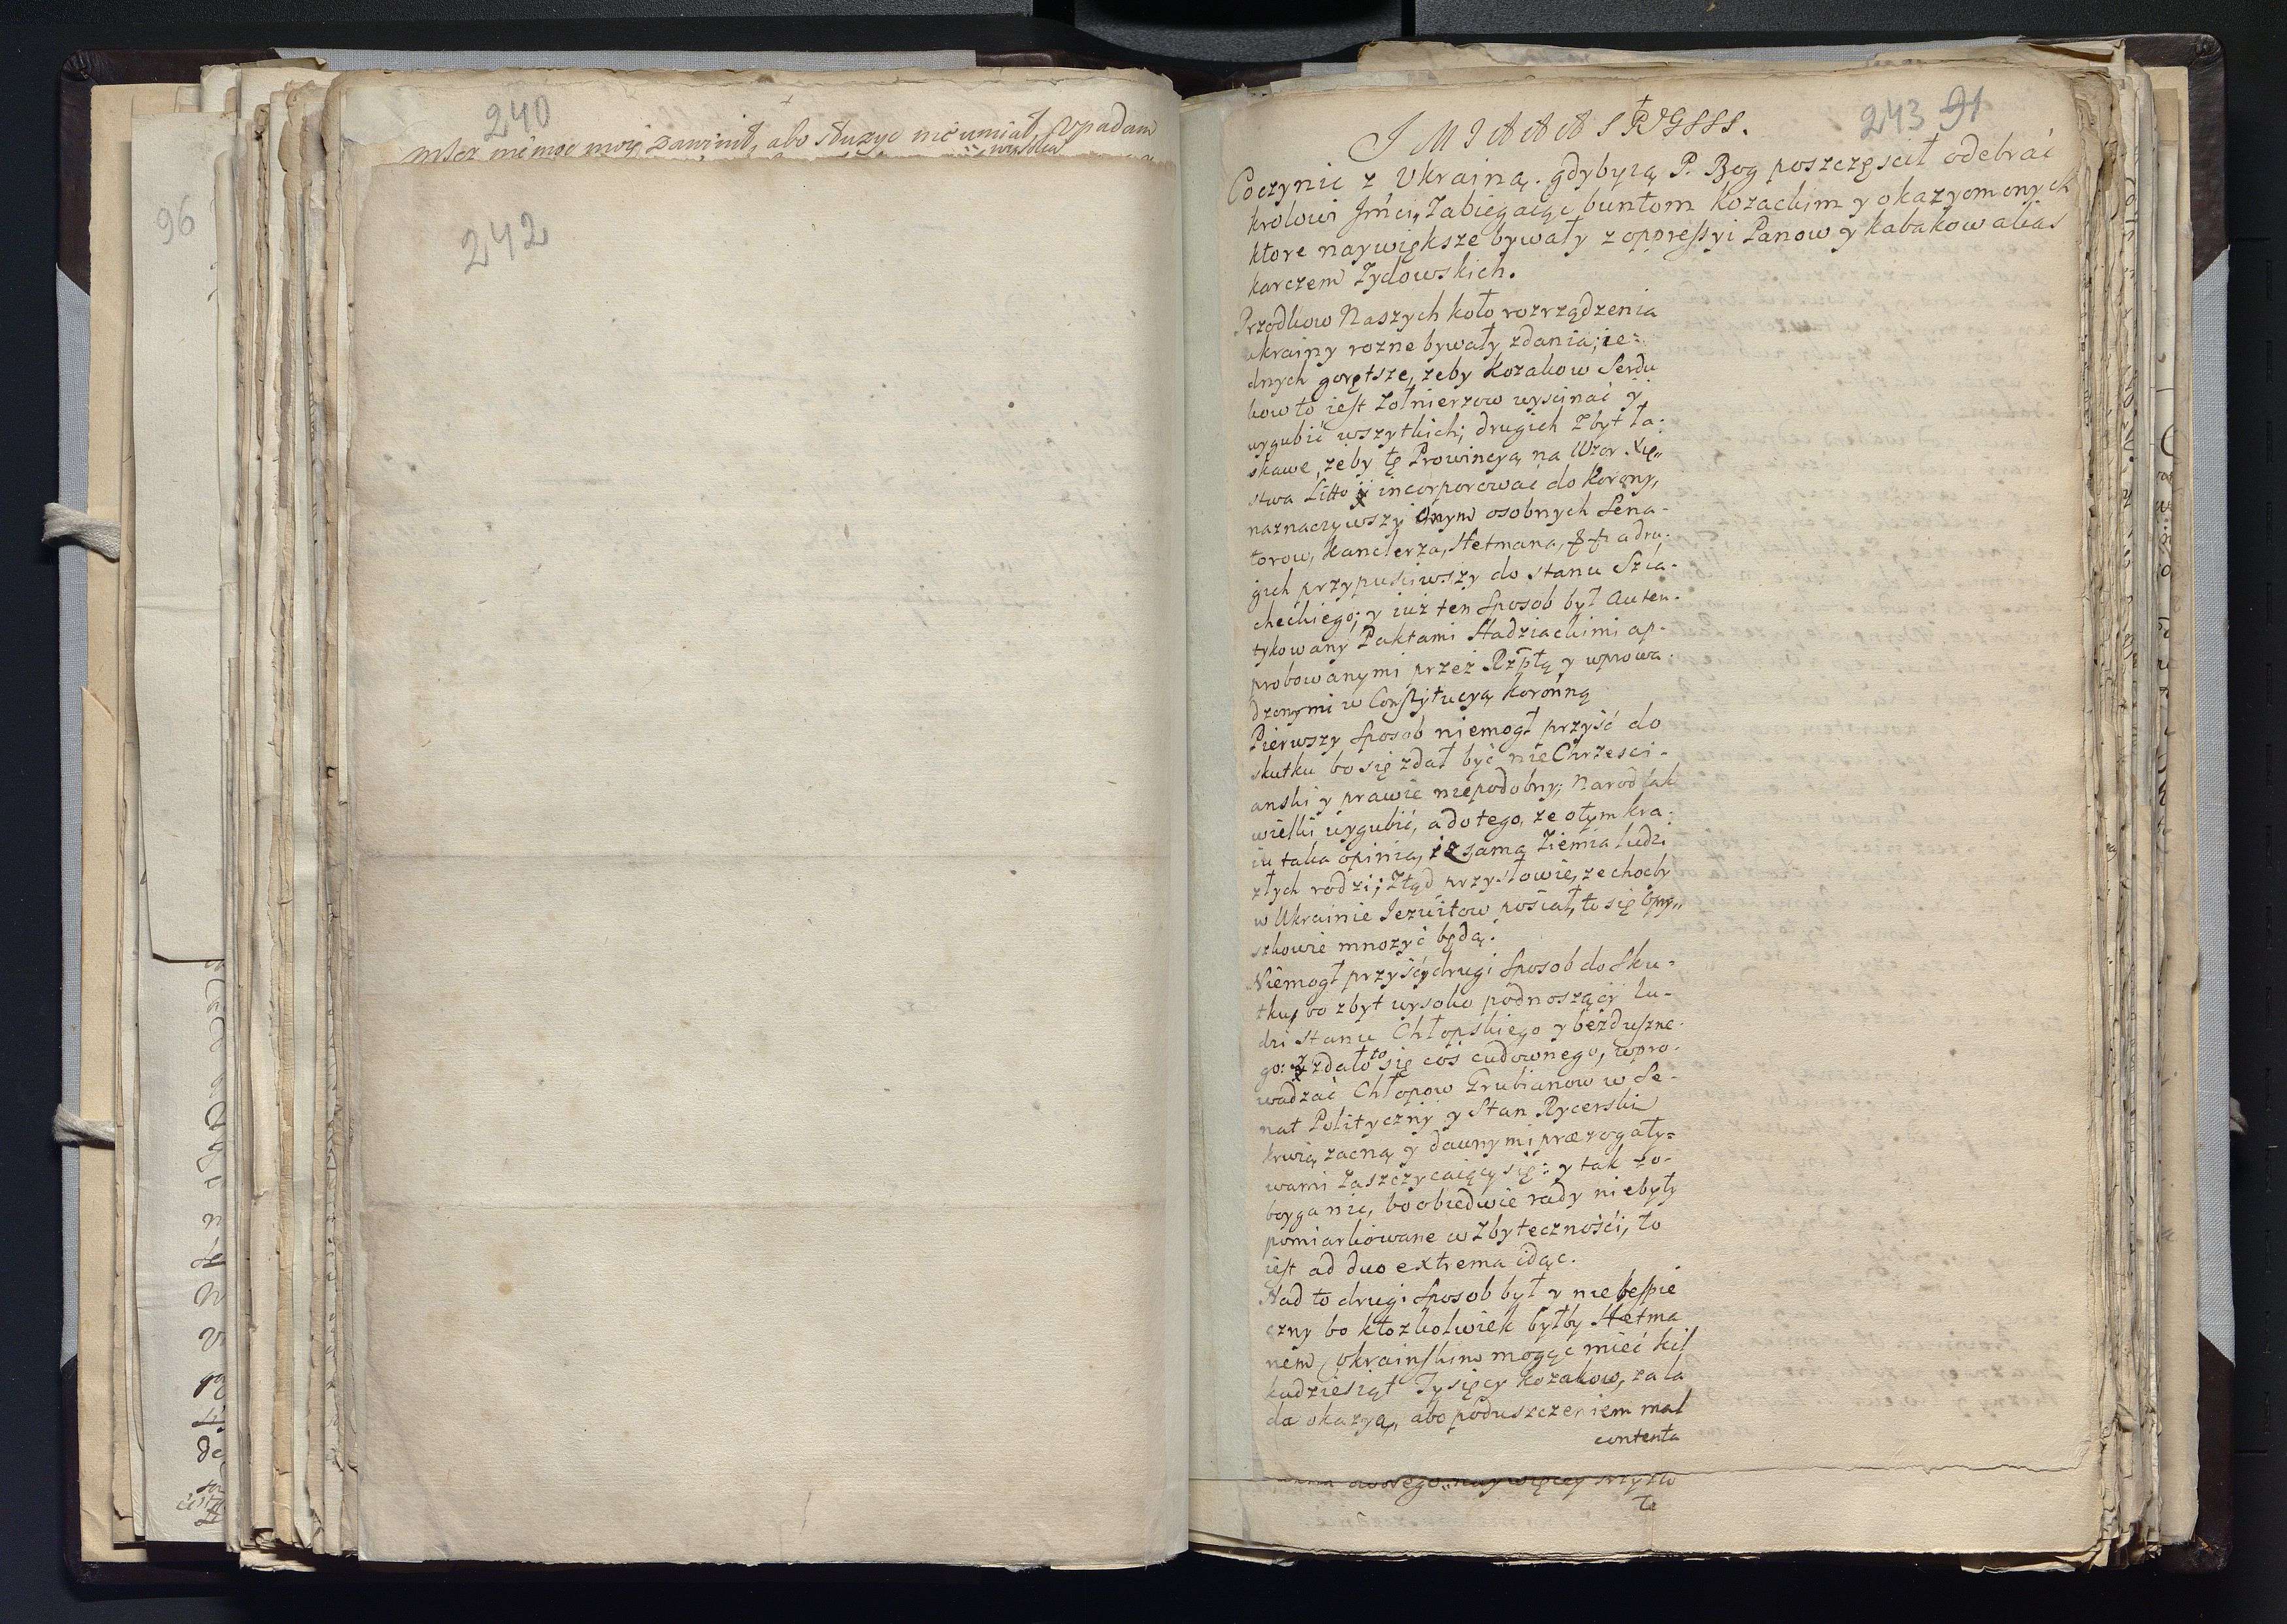 240
mię moc moię zawinił, abo służyc nie umiał, Vpadam
96
242
243 91
J M J A A A S P J G S S S.
Co czynic z Vkrainą. gdybyią P. Bog poszczęscił odebrać
krolowi Jmci, Zabiegaiąc buntom Kozackim y okazyom onych
ktore naywiększe bywały z oppressyi Panow y Kabakow alias
karczem Zydowskich.
Przodkow Naszych koło rozrządzenia
ukrainy rozne bywały zdania; ie=
dnych gorętsze, zeby Kozakow Serdu
kow to iest Zołnierzow wyscinać y
wygubić wszytkich; drugich Zbyt ła-
skawe, żeby tę Prowincyą na Wzor Xię„
stwa Litto incorporować do Korony,
naznaczywszy onym osobnych Sena-
torow, Kanclerza, Hetmana, a dru-
gich przypusciwszy do stanu Szla-
checkiego; y iuż ten sposob był Auten-
tykowany Paktami Hadziackimi ap-
probowanymi przez Rzpltą y wprowa-
dzonymi w Constytucyą Koronną
Pierwszy sposob niemogł przyść do
skutku bo się zdał być nie Chrzesci-
anski y prawie niepodobny; Narod tak
wielki wygubić, a do tego, ze o tym kra-
iu taka opinia, iz sama Ziemia ludzi
złych rodzi; Ztąd przysłowie, ze choćby
w Ukrainie Jezuitow posiał, to się Opry„
szkowie mnozyć będą.
Niemogł przyść y drugi sposob do sku-
tku, bo zbyt wysoko podnoszący lu-
dzi stanu Chłopskiego y bezduszne-
go: zdało to się coś cudownego, wpro-
wadzać Chłopow Grubianow w Se-
nat Polityczny y Stan Rycerski
krwią zacną y dawnymi prærogaty=
wami Zaszczycaiący się: y tak zo-
boyga nic, bo obiedwie rady niebyły
pomiarkowane w Zbyteczności, to
iest ad duo extrema idąc.
Nad to drugi sposob był y niebespie
czny bo ktozkolwiek byłby Hetma
nem Vkrainskim mogąc mieć kil
kadziesiąt Tysięcy Kozakow, za la
da okazyą, abo poduszczeniem mal
contenta
naywięcey